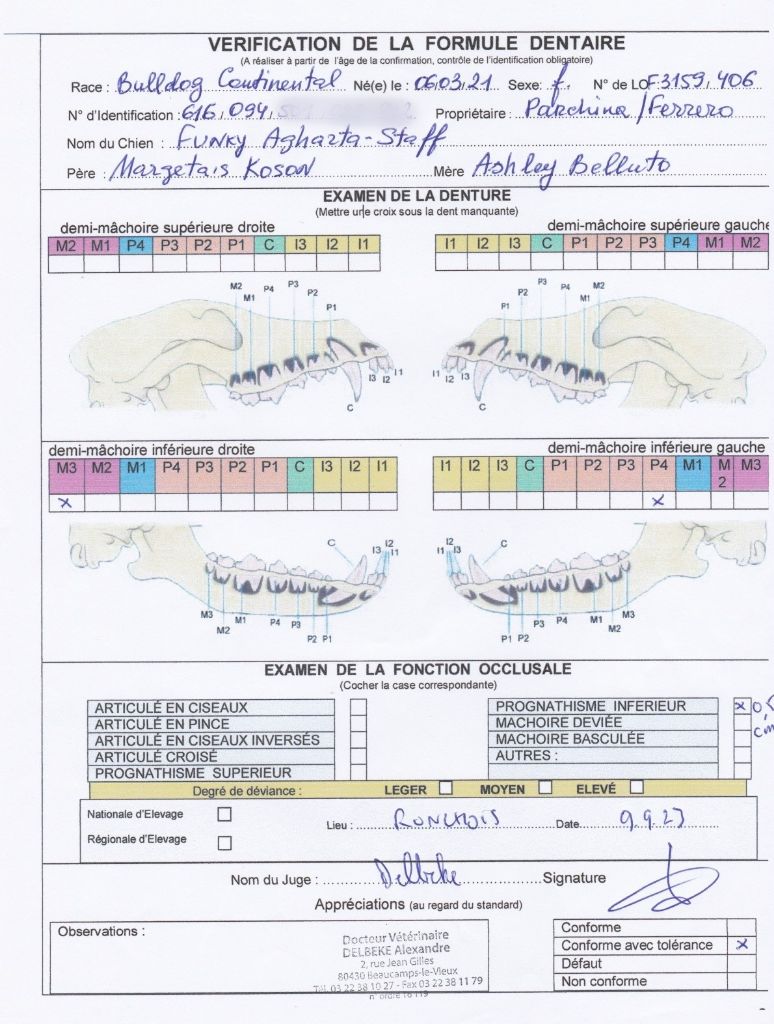 VERIFICATION DE LA FORMULE DENTAIRE
(A réaliser à partir de l'âge de la confirmation, contrôle de l'identification obligatoire)
Race : Bulldog Continental Né(e) le : 06.03.21 Sexe: f. N° de LOF 3159, 406
N° d'Identification : 616, 094, Propriétaire : Parchina / Ferrero
Nom du Chien : FUNKY Agharta-Staff
Père : Margetais Koson Mère Ashley Belluto
EXAMEN DE LA DENTURE
(Mettre une croix sous la dent manquante)
demi-mâchoire supérieure droite demi-mâchoire supérieure gauche
M2 M1 P4 P3 P2 P1 C I3 I2 I1 I1 I2 I3 C P1 P2 P3 P4 M1 M2
M2 M1 P4 P3 P2 P1 I3 I2 I1 C
P1 P2 P3 P4 M1 M2 I1 I2 I3 C
demi-mâchoire inférieure droite demi-mâchoire inférieure gauche
M3 M2 M1 P4 P3 P2 P1 C I3 I2 I1 I1 I2 I3 C P1 P2 P3 P4 M1 M2 M3
x x
C I3 I2 I1 M3 M2 M1 P4 P3 P2 P1
I1 I2 I3 C P1 P2 P3 P4 M1 M2 M3
EXAMEN DE LA FONCTION OCCLUSALE
(Cocher la case correspondante)
ARTICULÉ EN CISEAUX PROGNATHISME INFERIEUR x 0,5 cm
ARTICULÉ EN PINCE MACHOIRE DEVIÉE
ARTICULÉ EN CISEAUX INVERSÉS MACHOIRE BASCULÉE
ARTICULÉ CROISÉ AUTRES :
PROGNATHISME SUPERIEUR
Degré de déviance : LEGER MOYEN ELEVÉ
Nationale d'Elevage
Lieu : RONCHOIS Date 9.9.23
Régionale d'Elevage
Nom du Juge : Delbeke Signature
Appréciations (au regard du standard)
Observations :
Docteur Vétérinaire
DELBEKE Alexandre
2, rue Jean Gilles
80430 Beaucamps-le-Vieux
Tél. 03 22 38 10 27 - Fax 03 22 38 11 79
n° ordre 16 119
Conforme
Conforme avec tolérance x
Défaut
Non conforme